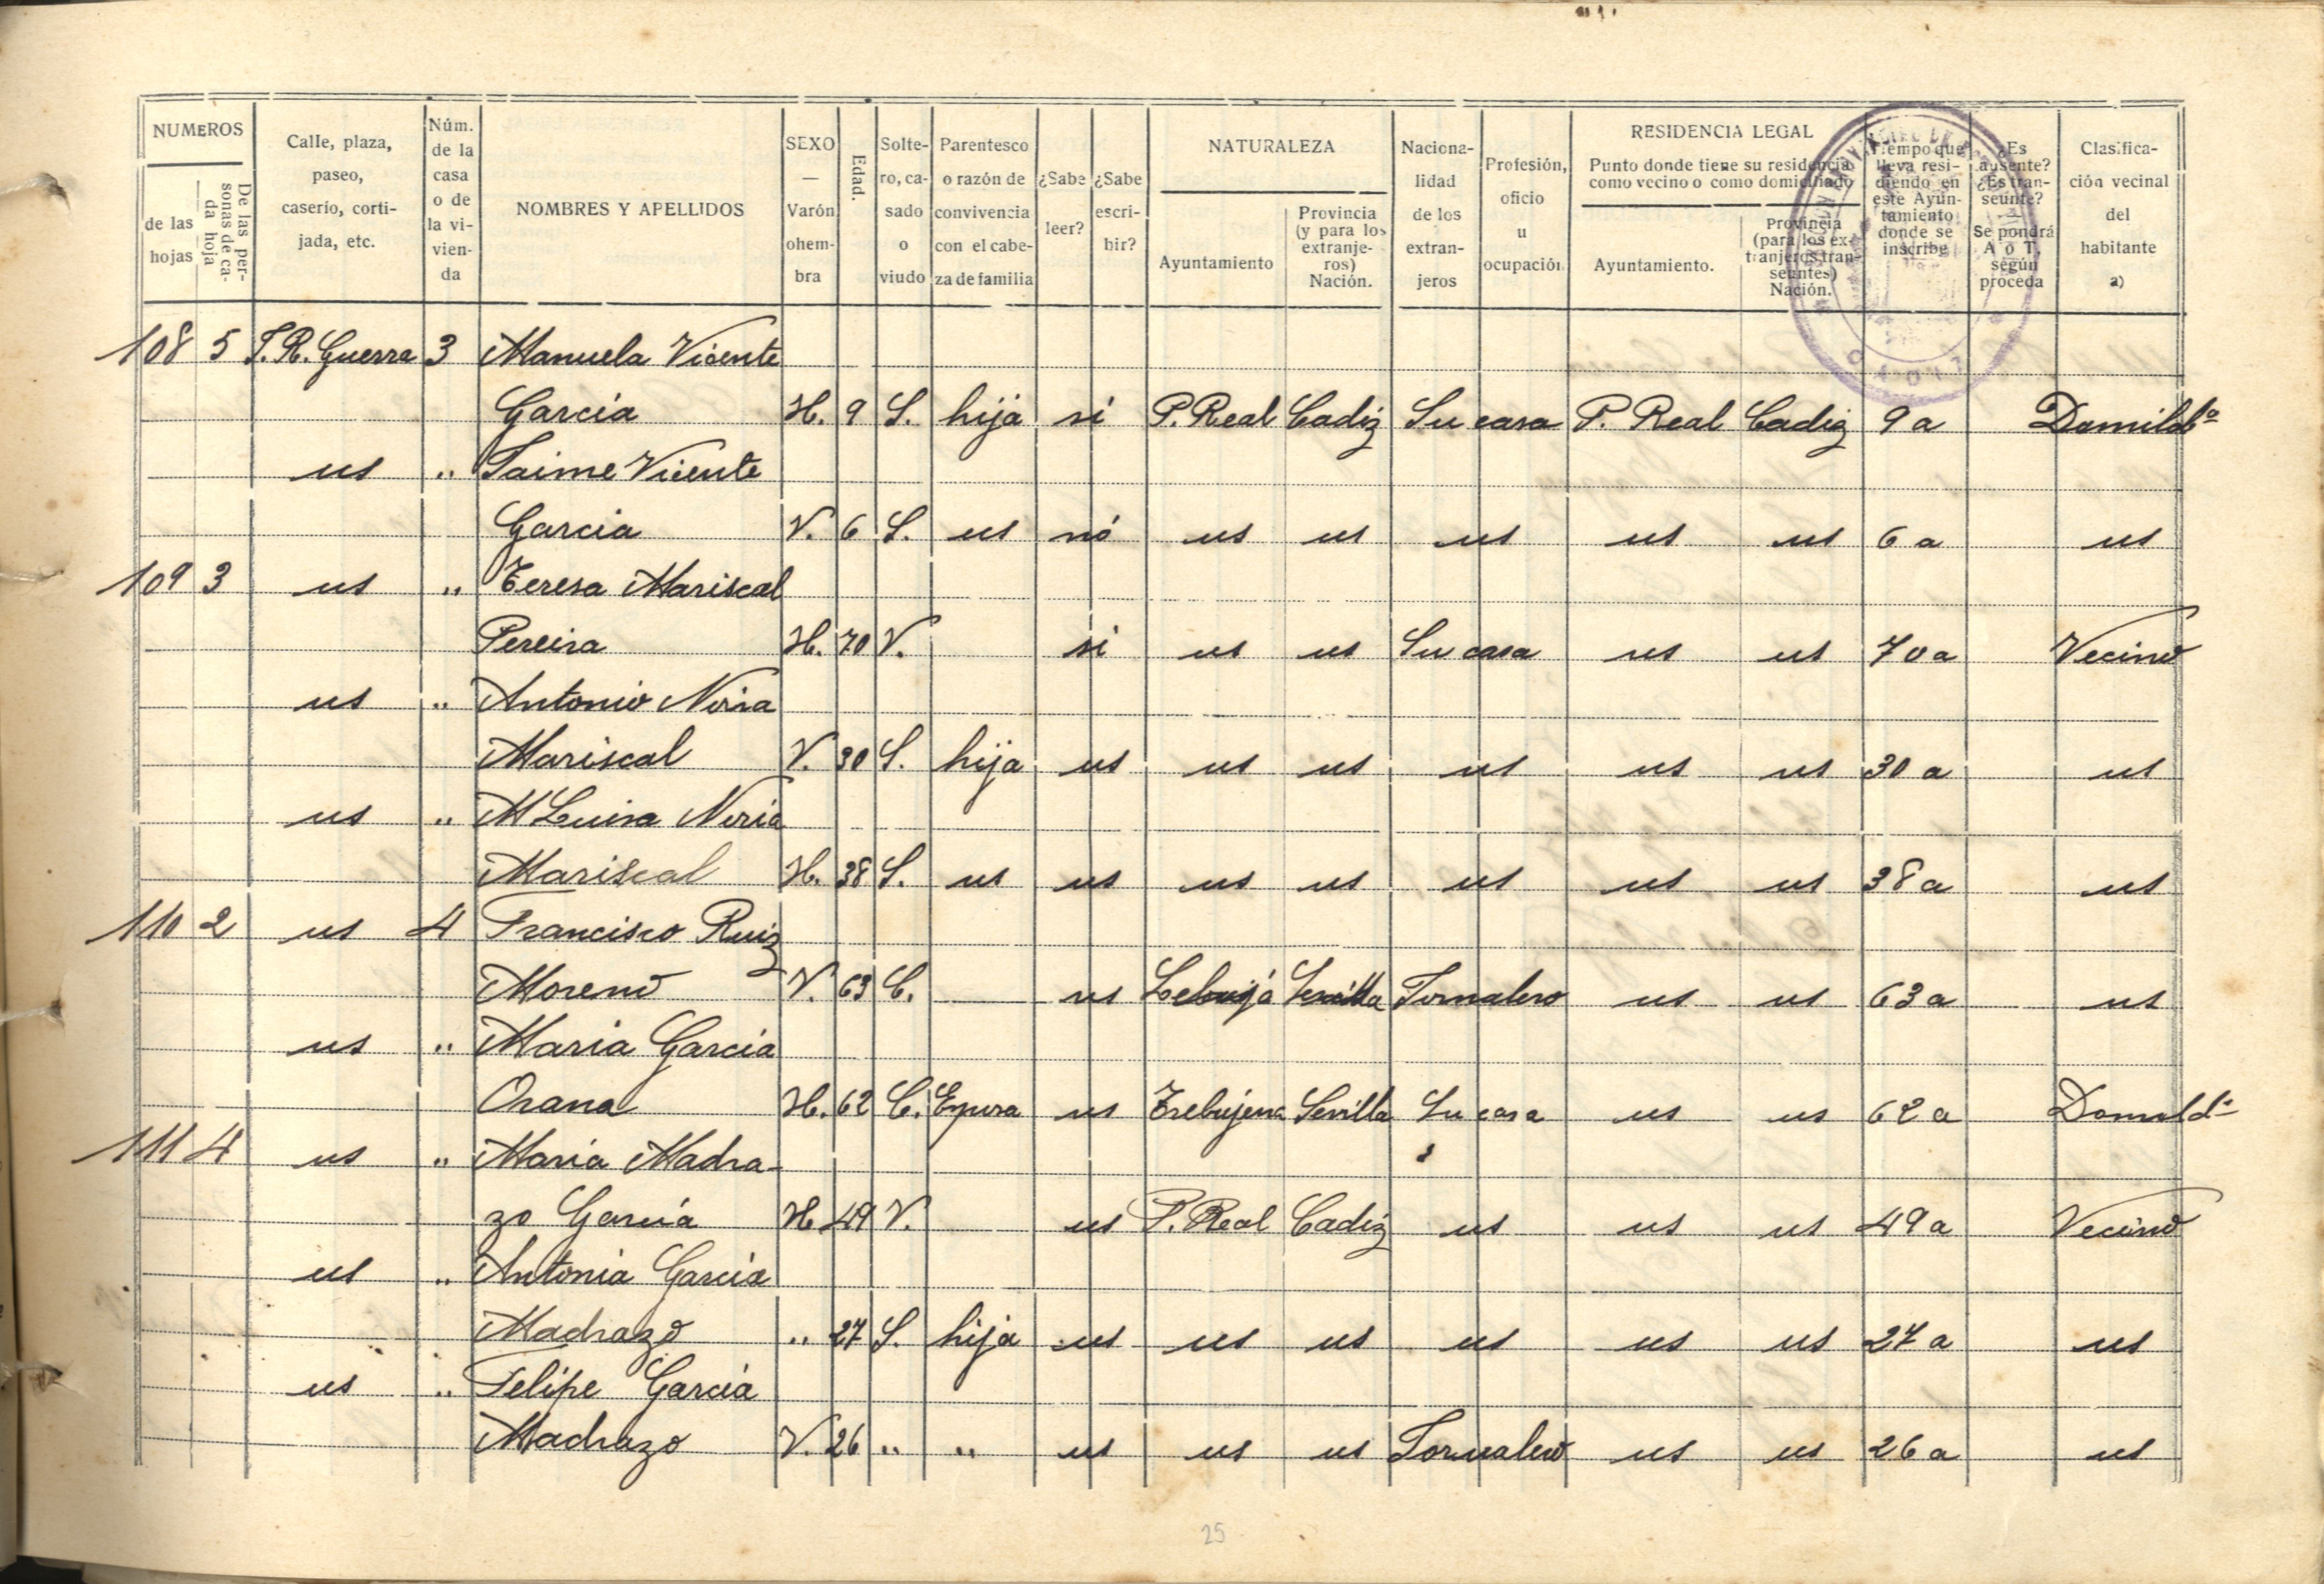 NUMEROS
de las hojas
De las personas de cada hoja
Calle, plaza, paseo, caserío, cortijada, etc.
Núm. de la casa o de la vivienda
NOMBRES Y APELLIDOS
SEXO — Varón ohembra
Edad.
Soltero, casado o viudo
Parentesco o razón de convivencia con el cabeza de familia
¿Sabe leer?
¿Sabe escribir?
NATURALEZA
Ayuntamiento
Provincia (y para los extranjeros) Nación.
Nacionalidad de los extranjeros
Profesión, oficio u ocupación
RESIDENCIA LEGAL
Punto donde tiene su residencia como vecino o como domiciliado
Ayuntamiento.
Provincia (para los extranjeros transeuntes) Nación.
Tiempo que lleva residiendo en este Ayuntamiento donde se inscribe
¿Es ausente? ¿Es transeunte? Se pondrá A o T, según proceda
Clasificación vecinal del habitante a)
108 5 T.R. Guerra 3 Manuela Vicente
Garcia H. 9 S. hija si P. Real Cadiz Su casa P. Real Cadiz 9 a
us " Jaime Vicente
Garcia V. 6 S. us nó us us us us us 6 a us
109 3 us " Teresa Mariscal
Pereira H. 70 V. si us us Su casa us us 70 a Vecino
us " Antonio
Mariscal V. 30 S. hija us us us us us us 30 a us
us " Mª Luisa
Mariscal H. 38 S. us us us us us us us 38 a us
110 2 us 4 Francisco Ruiz
Moreno V. 63 C. us Sevilla Jornalero us us 63 a us
us " Maria Garcia
H. 62 C. Espora us Trebujena Sevilla Su casa us us 62 a
111 4 us " Maria Madra-
zo Garcia H 49 V. us P. Real Cadiz us us us 49 a Vecino
us " Antonia Garcia
Madrazo " 27 S. hija us us us us us us 27 a us
us " Felipe Garcia
Madrazo V. 26 " " us us us Jornalero us us 26 a us
25